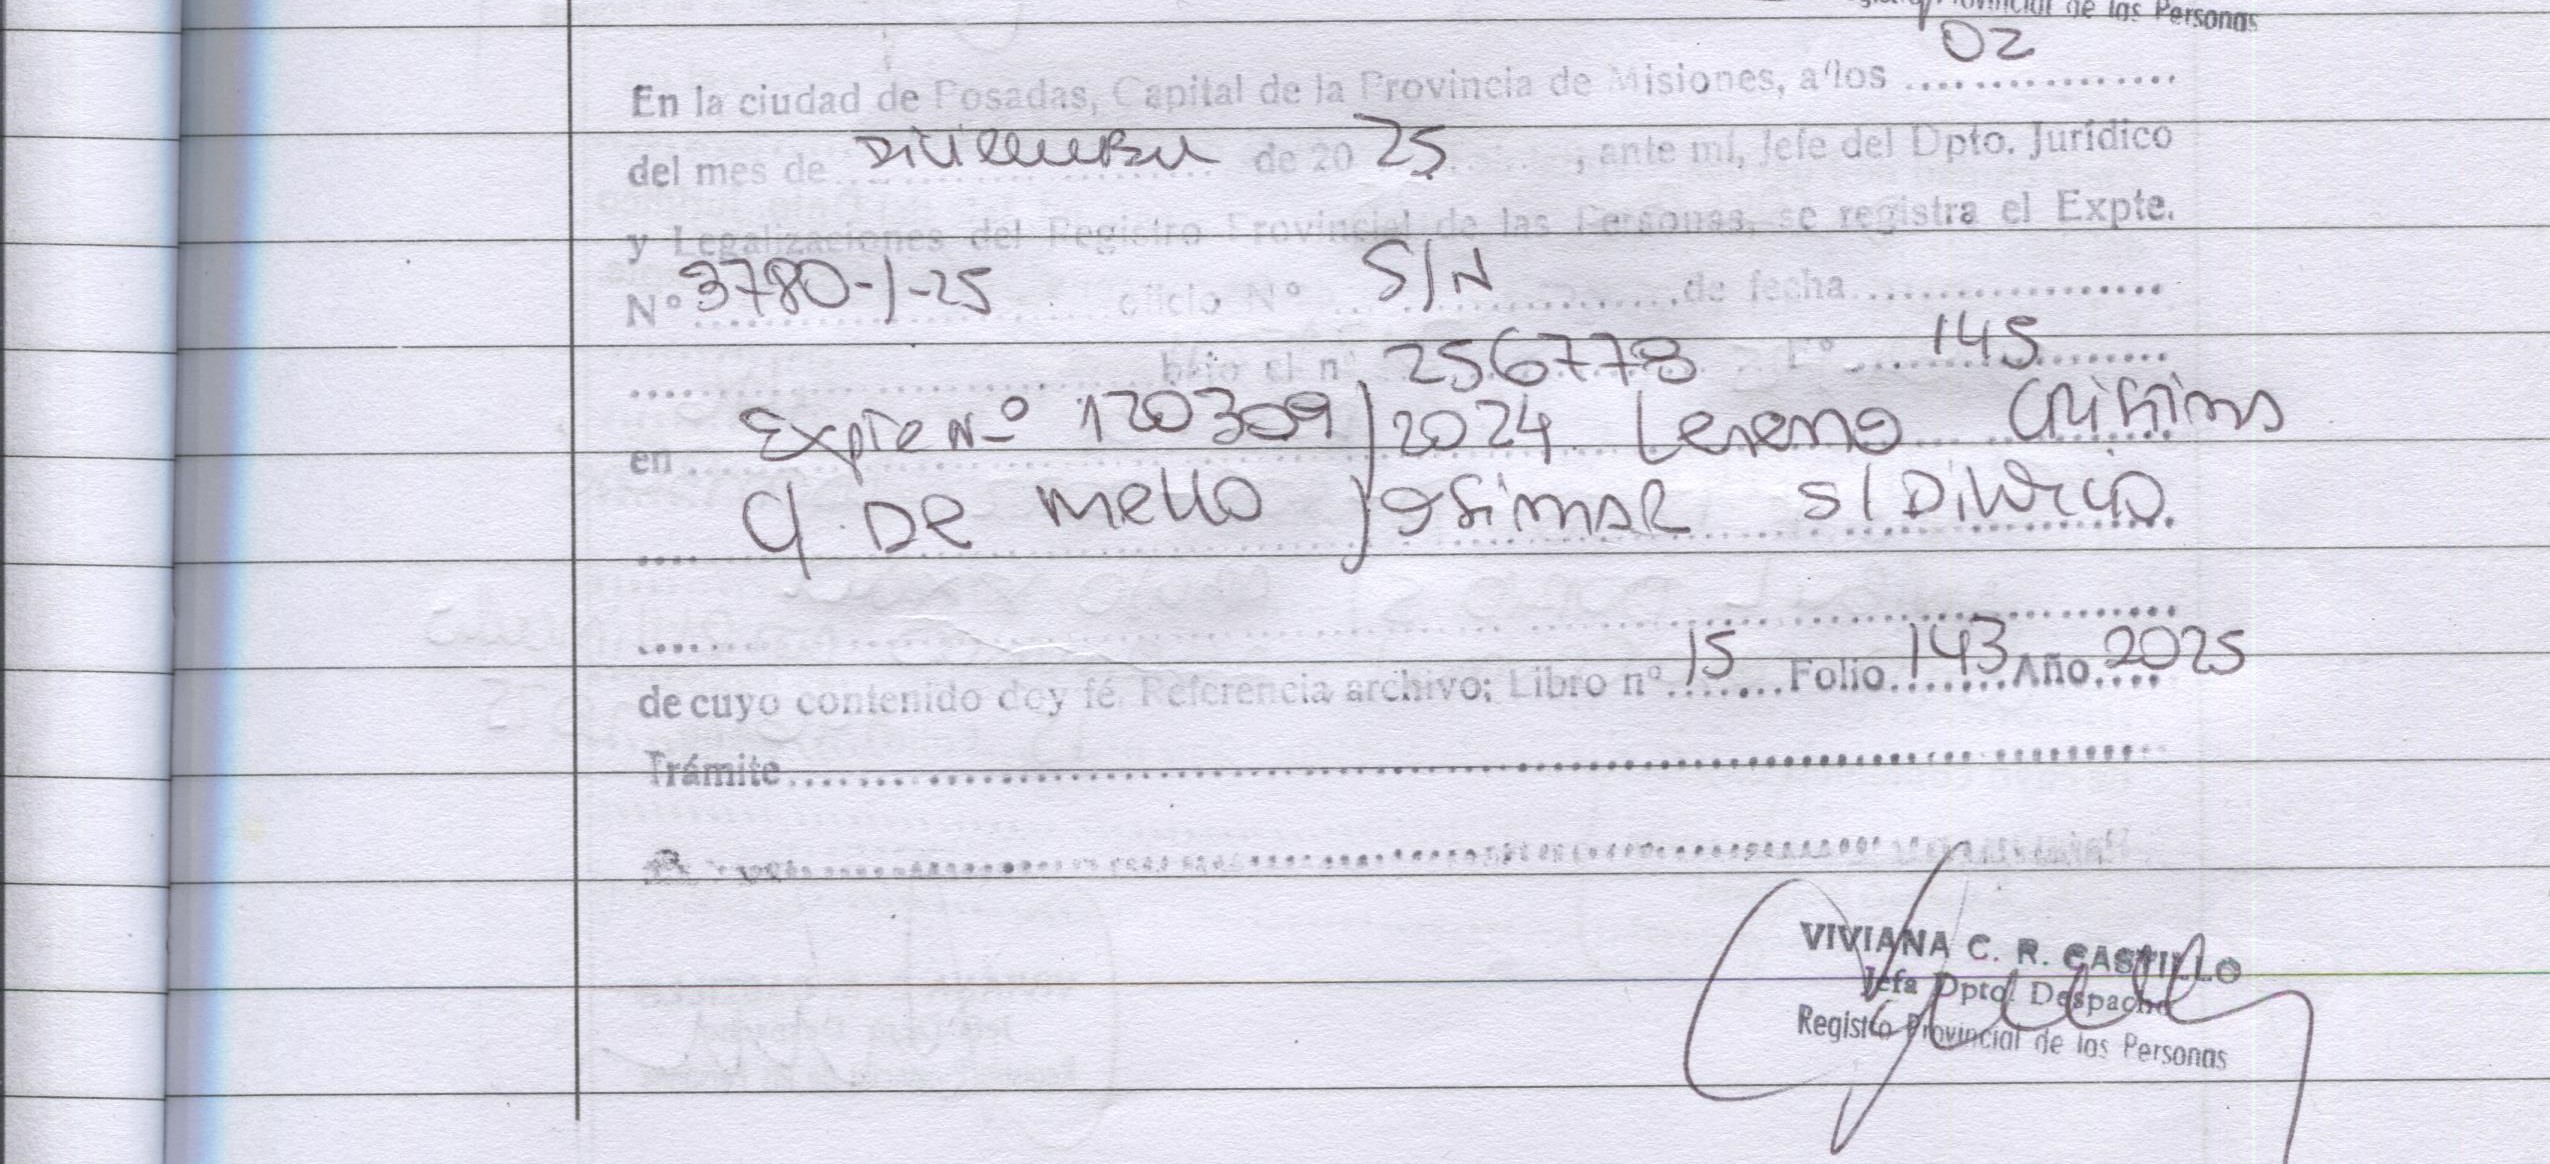 Registro Provincial de las Personas
02
En la ciudad de Posadas, Capital de la Provincia de Misiones, a los ................
del mes de Diciembre de 20 25 , ante mí, Jefe del Dpto. Jurídico
y Legalizaciones del Registro Provincial de las Personas, se registra el Expte.
Nº 3780-1-25 oficio Nº S/N de fecha ................
bajo el nº 256778 Fº 145
en Expte Nº 120309/2024 Cristina
c/ De Mello Josimar s/Divorcio.
de cuyo contenido doy fé. Referencia archivo: Libro nº 15 Folio 143 Año 2025
Trámite ................
VIVIANA C. R. CASTILLO
Jefa Dpto. Despacho
Registro Provincial de las Personas